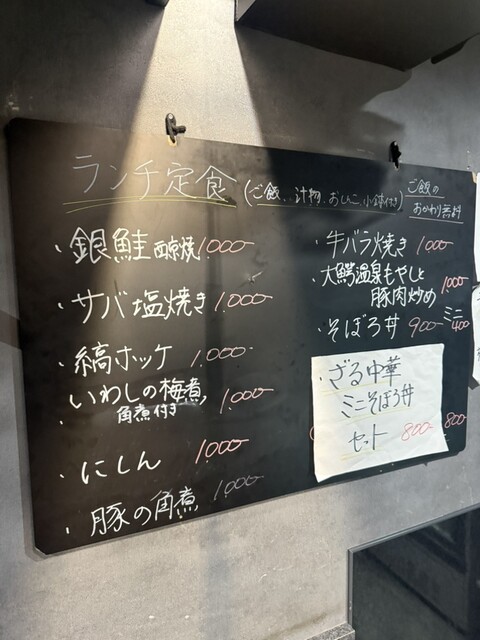 ランチ定食 (ご飯、汁物、おしんこ、小鉢付き) ご飯の
おかわり無料
・銀鮭西京焼 1,000-
・サバ塩焼き 1,000-
・縞ホッケ 1,000-
・いわしの梅煮 1,000-
角煮付き
・にしん 1,000-
・豚の角煮 1,000-
・牛バラ焼き 1,000-
大鰐温泉もやしと 1000-
豚肉炒め
・そぼろ丼 900- ミニ
400-
・ざる中華
ミニそぼろ丼
セット 800- 800-